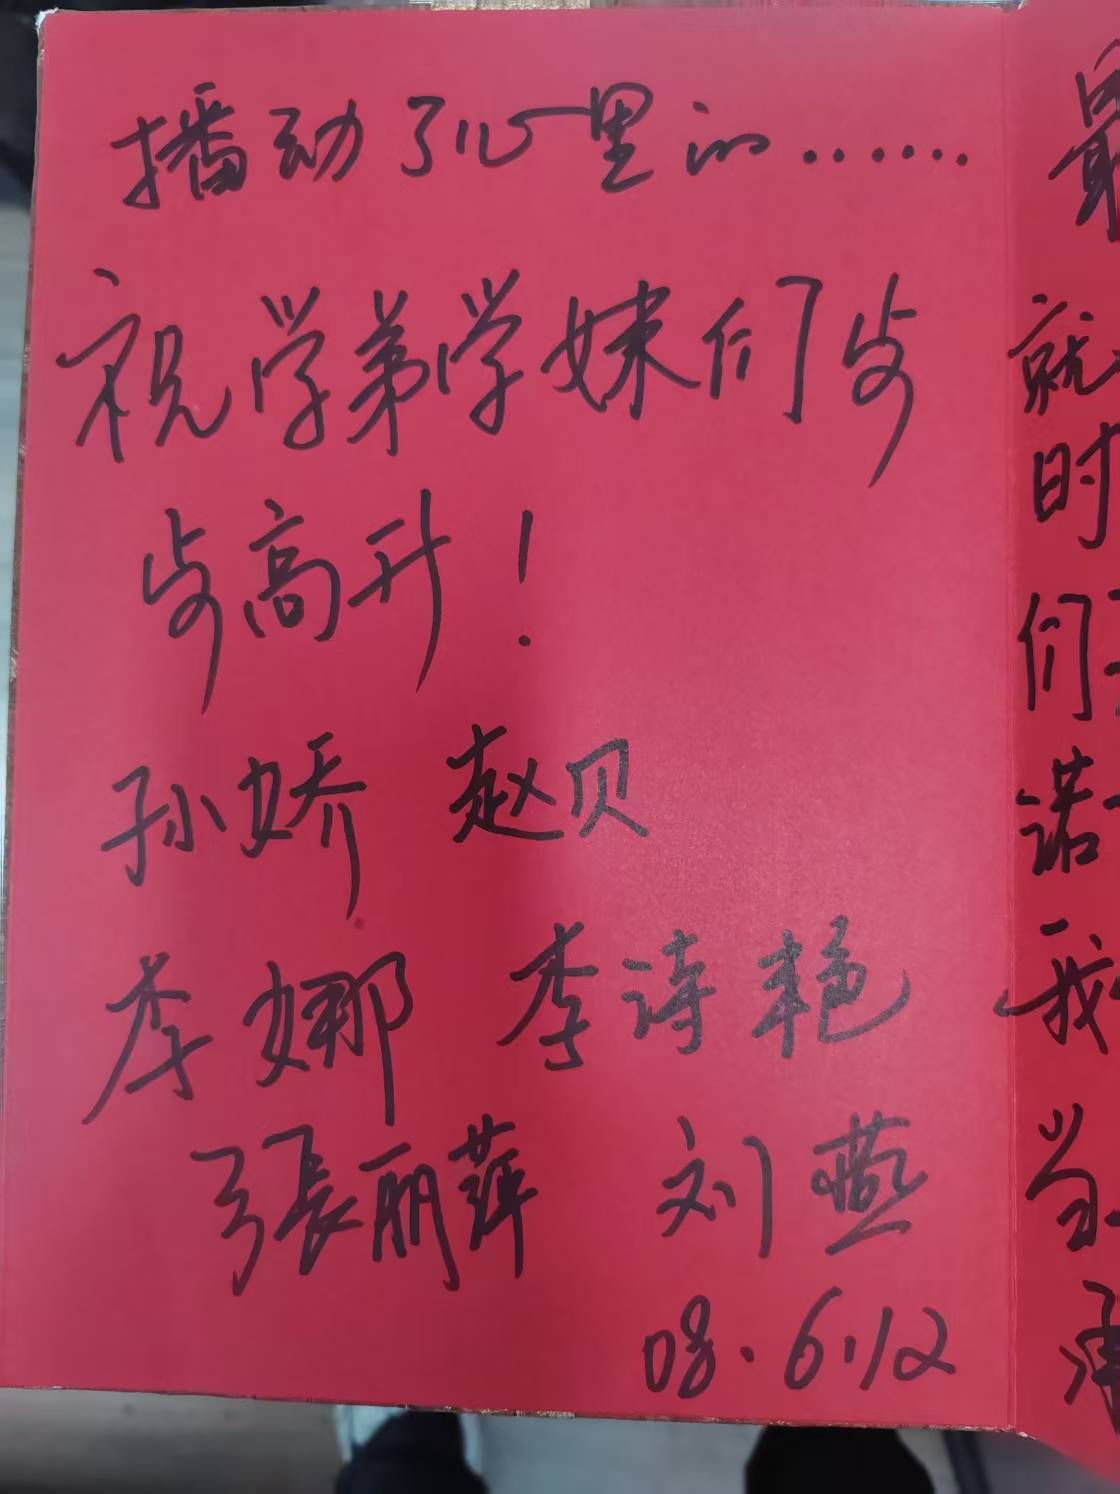 播动了心里的……
祝学弟学妹们步
步高升！
孙娇 赵贝
李娜 李诗艳
張丽萍 刘燕
08.6.12
最
就
时
们
诺
我
当